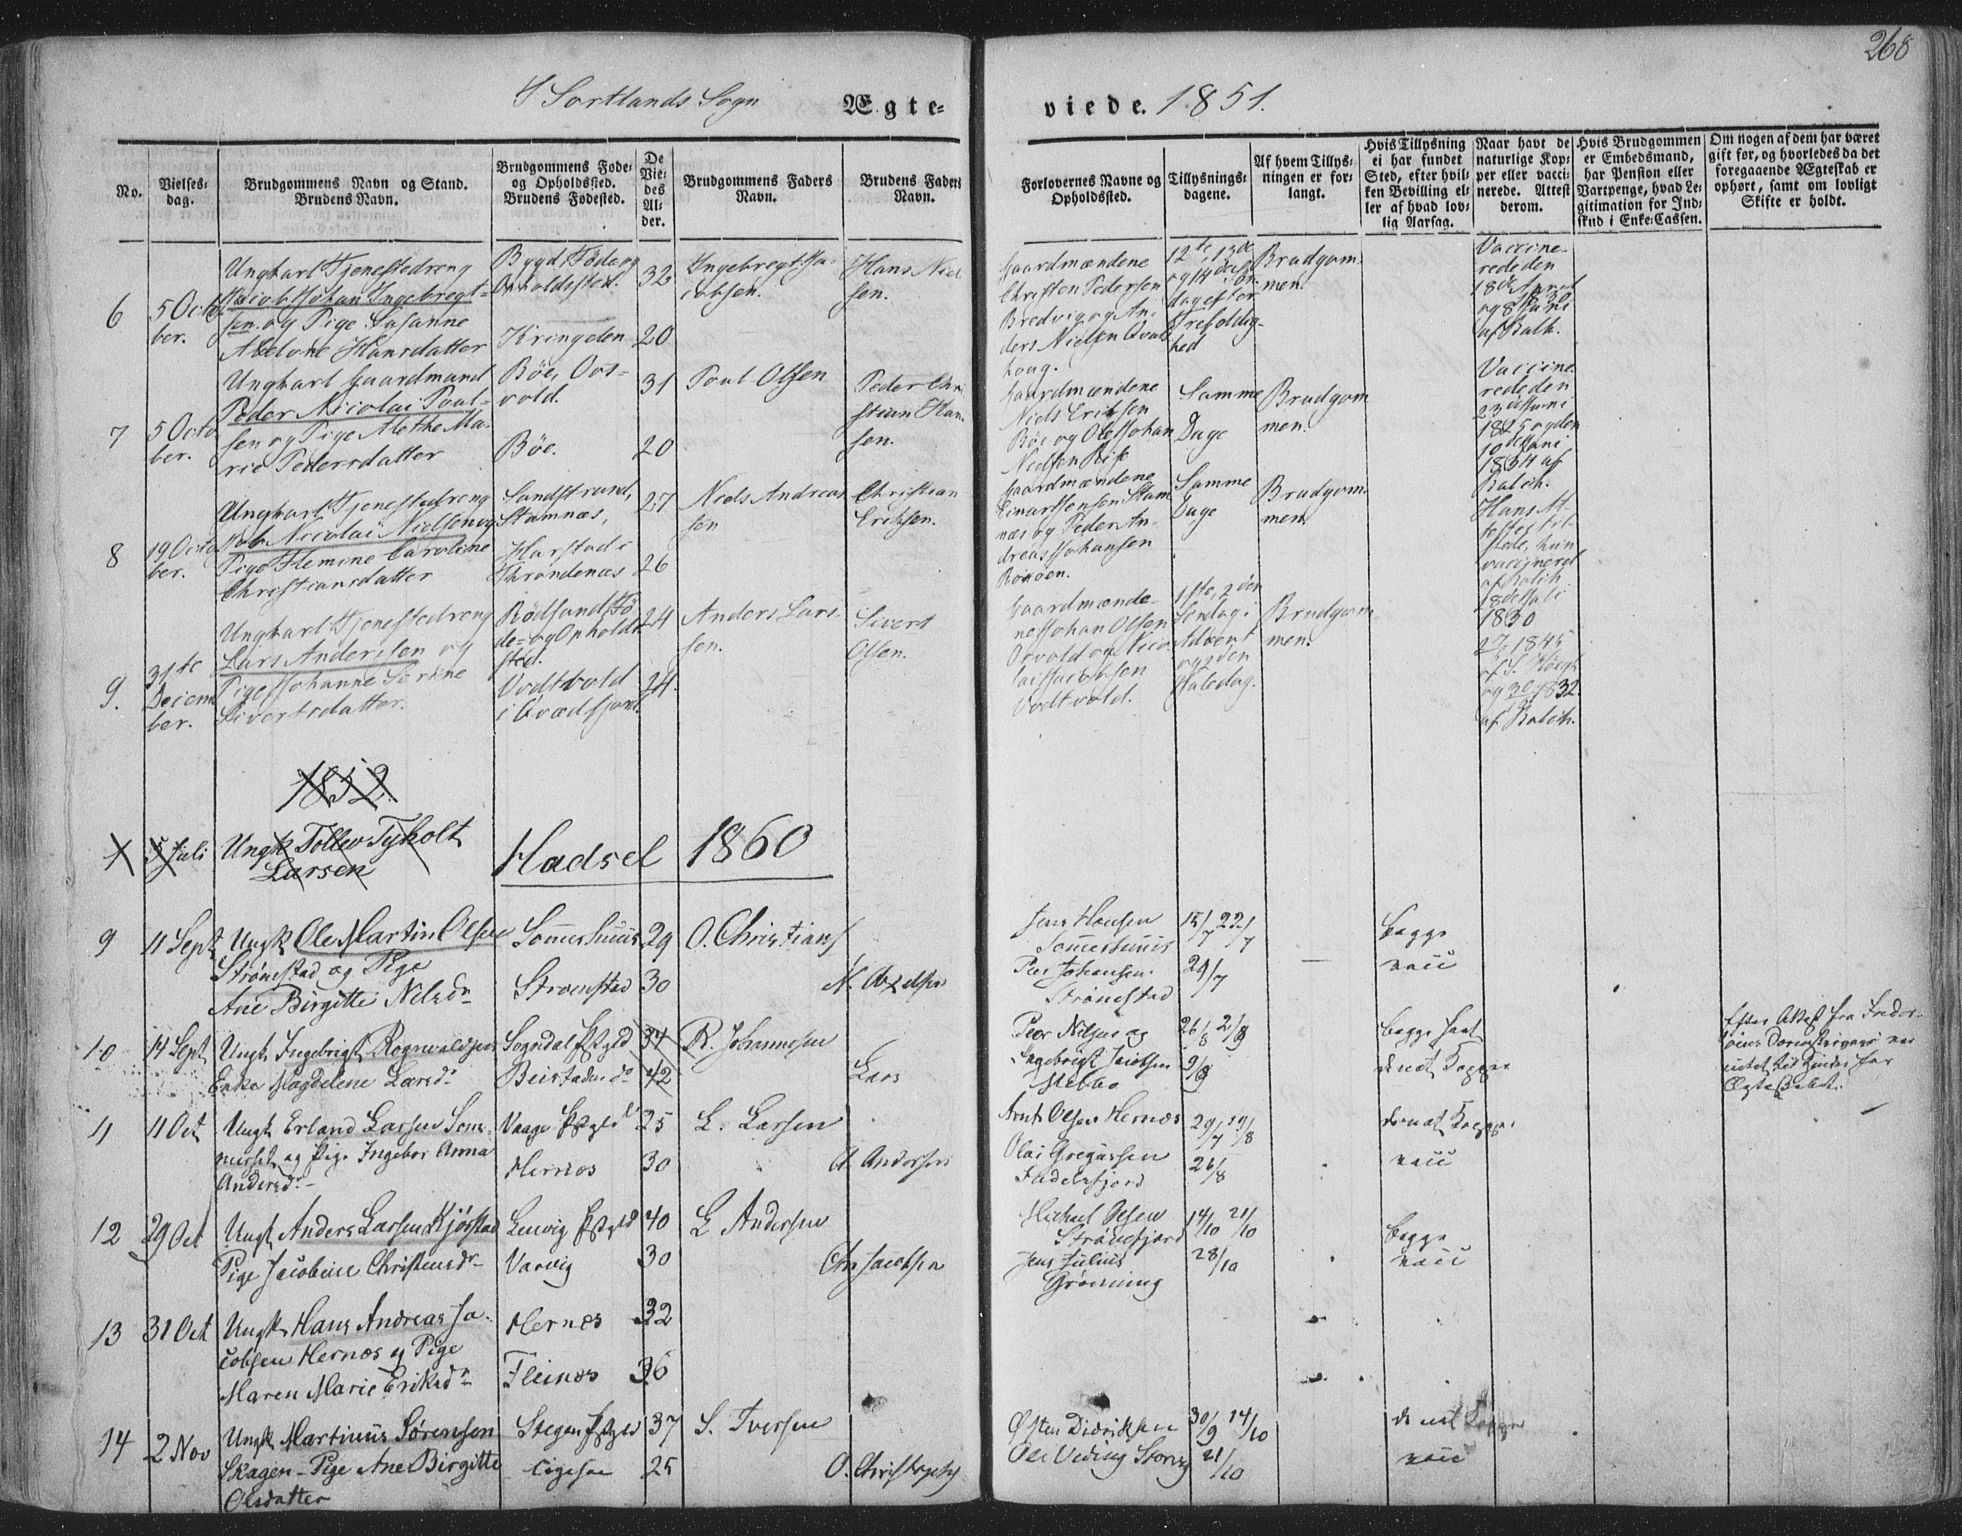 268
I Sortlands Sogn
Ægte-
viede. 1851.
No.
Vielses-
dag.
Brudgommens Navn og Stand.
Brudens Navn.
Brudgommens Føde-
og Opholdssted.
Brudens Fødested.
De
Vie-
des
Al-
der.
Brudgommens Faders
Navn.
Brudens Faders
Navn.
Forlovernes Navne og
Opholdssted.
Tillysnings-
dagene.
Af hvem Tillys-
ningen er for-
langt.
Hvis Tillysning
ei har fundet
Sted, efter hvil-
ken Bevilling el-
ler af hvad lov-
lig Aarsag.
Naar havt de
naturlige Kop-
per eller vacci-
nerede. Attest
derom.
Hvis Brudgommen
er Embedsmand,
har Pension eller
Vartpenge, hvad Le-
gitimation for Ind-
skud i Enke-Cassen.
Om nogen af dem har været
gift før, og hvorledes da det
foregaaende Ægteskab er
ophørt, samt om lovligt
Skifte er holdt.
6
5 Octo
ber.
Ungkarl Tjenestedreng
Jacob Johan Ingebregt-
sen og Pige Susanne
Abelone Hansdatter
Bygd Føde og
Opholdssted.
Kringelen
32
20
Ingebregt Ja-
cobsen.
Hans Niel
sen.
Gaardmændene
Christen Pedersen
Bredvig og An-
ders Nielsen Qval
houg.
12te, 13de
og 14de Søn
dag efter
Trefoldig-
hed
Brudgom
men.
Vaccine-
rede den
18de April
og 8 Juni
af Balch.
7
5 Octo
ber.
Ungkarl Gaardmand
Peder Nicolai Poul-
sen og Pige Alethe Ma-
rie Pedersdatter
Bøe, Oos-
vold.
Bøe.
31
20
Poul Olsen
Peder Chri
stian Han
sen.
Gaardmændene
Niels Eriksen
Bøe og Ole Johan
Nielsen Rise
Samme
Dage
Brudgom
men.
Vaccine
rede den
23de Juni
1825 og den
10de Juni
1834 af
Balch.
8
19 Octo
ber.
Ungkarl Tjenestedreng
Job Nicolai Nielsen og
Pige Hemine Caroline
Christiansdatter
Sandstrand,
Stamnæs,
Harstad i
Throndenæs
27
26
Niels Andreas
sen
Christian
Eriksen.
Gaardmændene
Einar Jensen Stam
næs og Peder An-
dreas Johansen
Samme
Dage
Brudgom
men.
Hans At-
test er til-
stede, hun
vaccinered
af Balch
28de Juli
1830
9.
31te
Decem
ber.
Ungkarl Tjenestedreng
Lars Andersen og
Pige Johanne Serine
Sivertsdatter.
Rødsand Fø
de- og Opholds
sted.
Vodtvold
i Qvædfjord.
24
24.
Anders Lars
sen.
Sivert
Olsen.
Gaardmænde-
ne Johan Olsen
Osvold og Nico
lai Jacobsen
Vodtvold.
1ste, 2den
Søndag i
Advent
og 2den
Juledag.
Brudgom
men.
1845
og 1832
af Balch.
1852.
1
5 Juli
Ungk Tollev Tyholt
Larsen
Hadsel 1860
9
11 Sept
Ungk Ole Martin Olsen
Strønstad og Pige
Ane Birgitte Nilsdr
Sommerhuus
Strønstad
29
30
O. Christians
N. Axelsen
Jens Hansen
Sommerhuus
Peer Johansen
Strønstad
15/7 22/7
29/7
begge
vacc
10
14 Sept
Ungk Ingebrigt Rognvaldsen
Enke Magdelene Larsdr
Sogndal Pstgld
Beistaden do
34
42
R. Johannesen
Lars
Peer Nilsen og
Ingebrigt Jacobsen
Melbo
26/8 2/9
9/9
begge havt
de nat Kopper
Efter Attest fra
11
11 Oct
Ungk Erland Larsen Som-
merset og Pige Ingebor Anna
Andersdr
Vaage Pstgld
Hernes
25
30
L. Larsen
A Andersen
Arnt Olsen Hernæs
Olai Gregussen
Fadelsfjord
29/7 19/8
26/8
de nat Kopper
vacc
12
29 Oct
Ungk Anders Larsen Kjørstad
Pige Jacobine Christensdr
Lenvig Pstgld
Vaavig
40
30
L Andersen
Chr Jacobsen
Michael Olsen
Strønefjord
Jens Julius
Grønning
14/10 21/10
28/10
begge
vacc
13
31 Oct
Ungk Hans Andreas Ja-
cobsen Hernæs og Pige
Maren Marie Eriksdr
Hernæs
Fleinæs
32
36
14
2 Nov
Ungk Martinus Sørensen
Skagen - Pige Ane Birgitte
Olsdatter
Stegen Pstgld
37
25
S. Iversen
O. Christophs
Østen Didriksen
Ole Viding
30/9 14/10
21/10
de nat Kopper
vacc